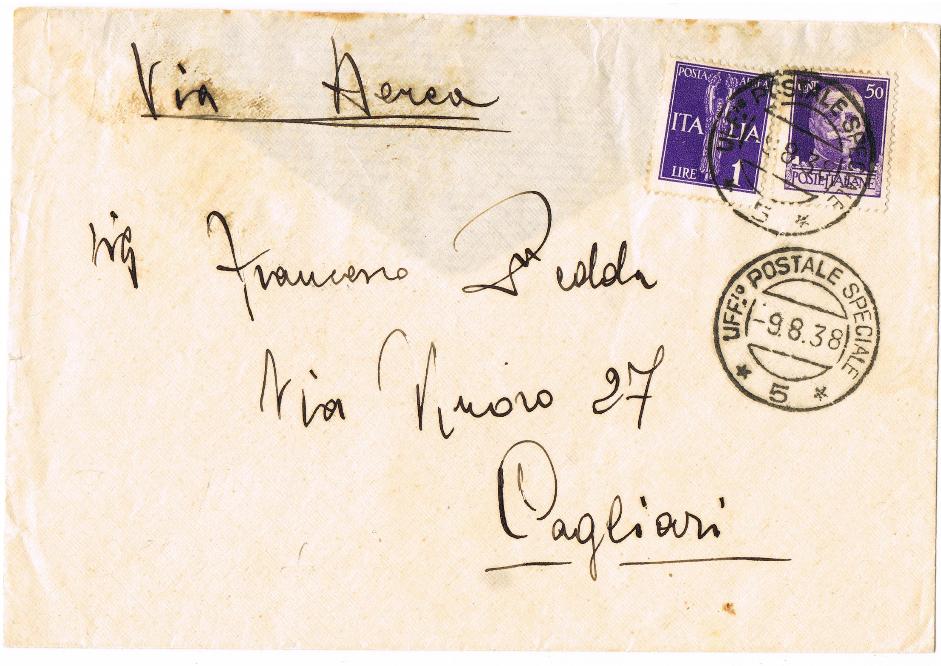 Via Aerea
POSTA AEREA
ITALIA
LIRE 1
50
POSTE ITALIANE
UFF.º POSTALE SPECIALE
5
Sig Francesco Sedda
UFF.º POSTALE SPECIALE
-9.8.38
5
Via Nuoro 27
Cagliari